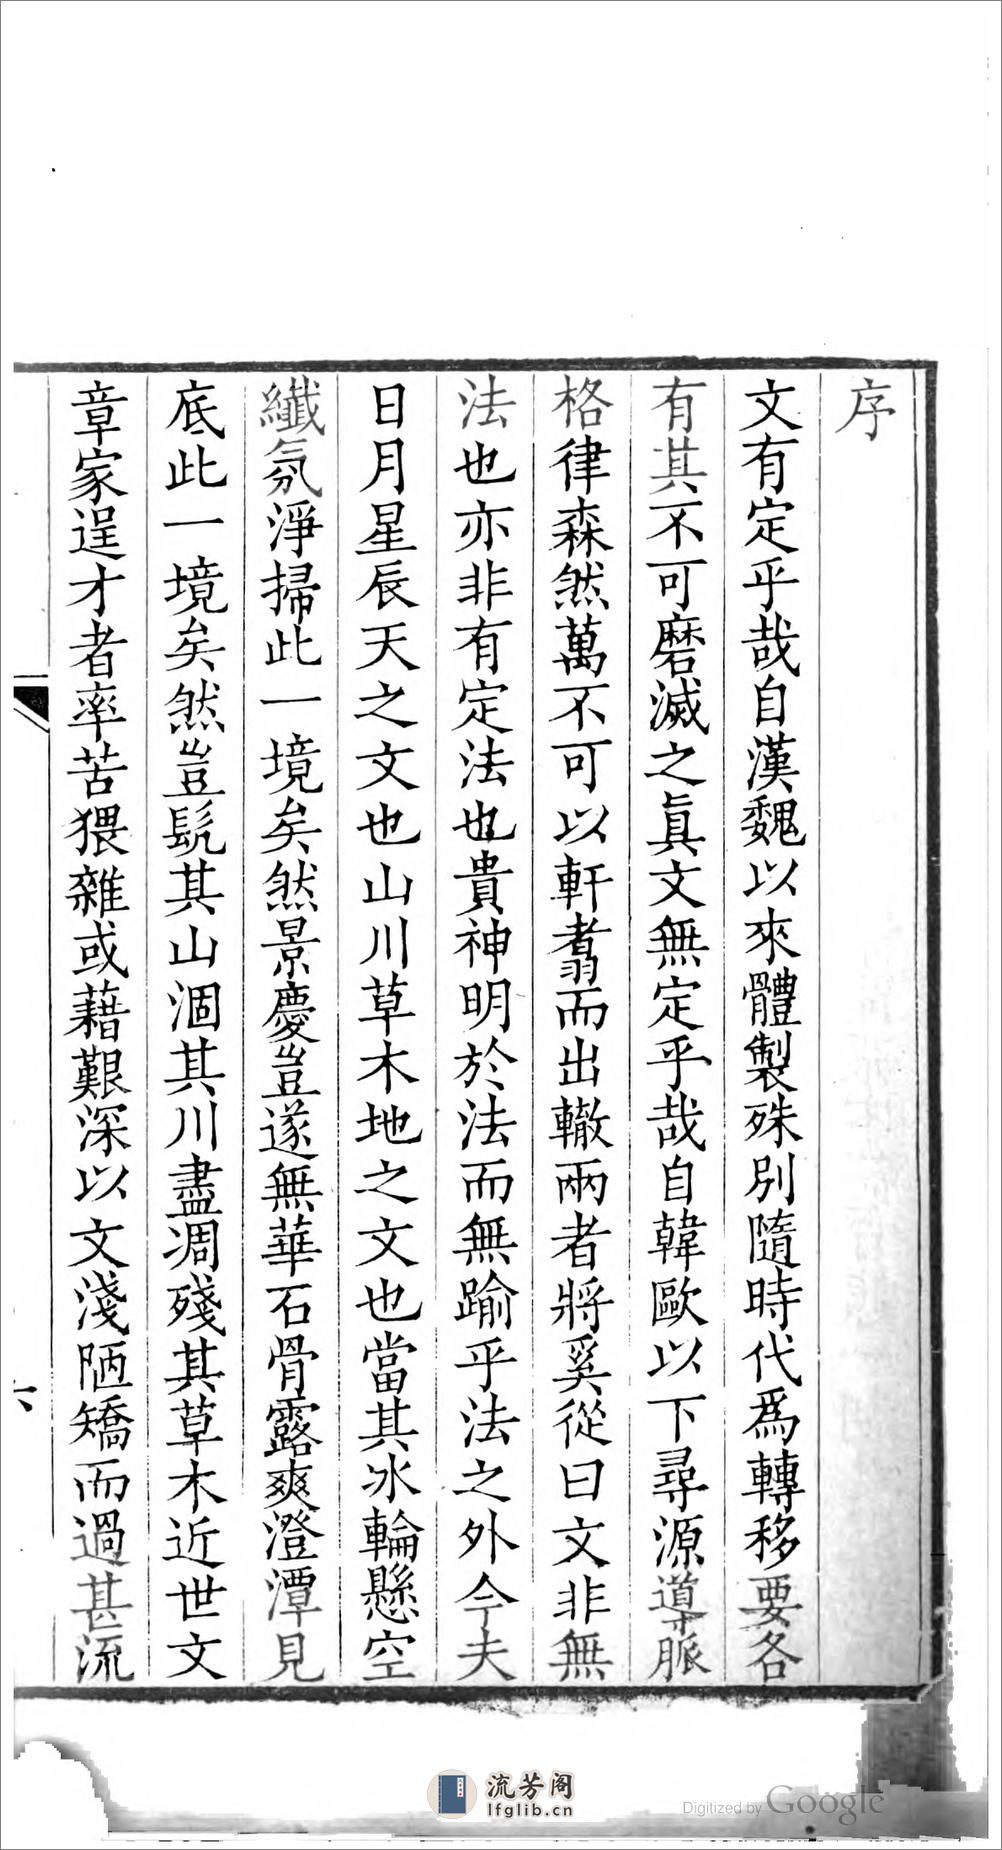 序
文有定乎哉自漢魏以來體製殊別隨時代爲轉移要各
有其不可磨滅之眞文無定乎哉自韓歐以下尋源導脈
格律森然萬不可以軒翥而出轍兩者將奚從曰文非無
法也亦非有定法也貴神明於法而無踰乎法之外今夫
日月星辰天之文也山川草木地之文也當其冰輪懸空
纖氛淨掃此一境矣然景慶豈遂無華石骨露爽澄潭見
底此一境矣然豈髡其山涸其川盡凋殘其草木近世文
章家逞才者率苦猥雜或藉艱深以文淺陋矯而過甚流
六
流芳阁
lfglib.cn
Digitized by Google